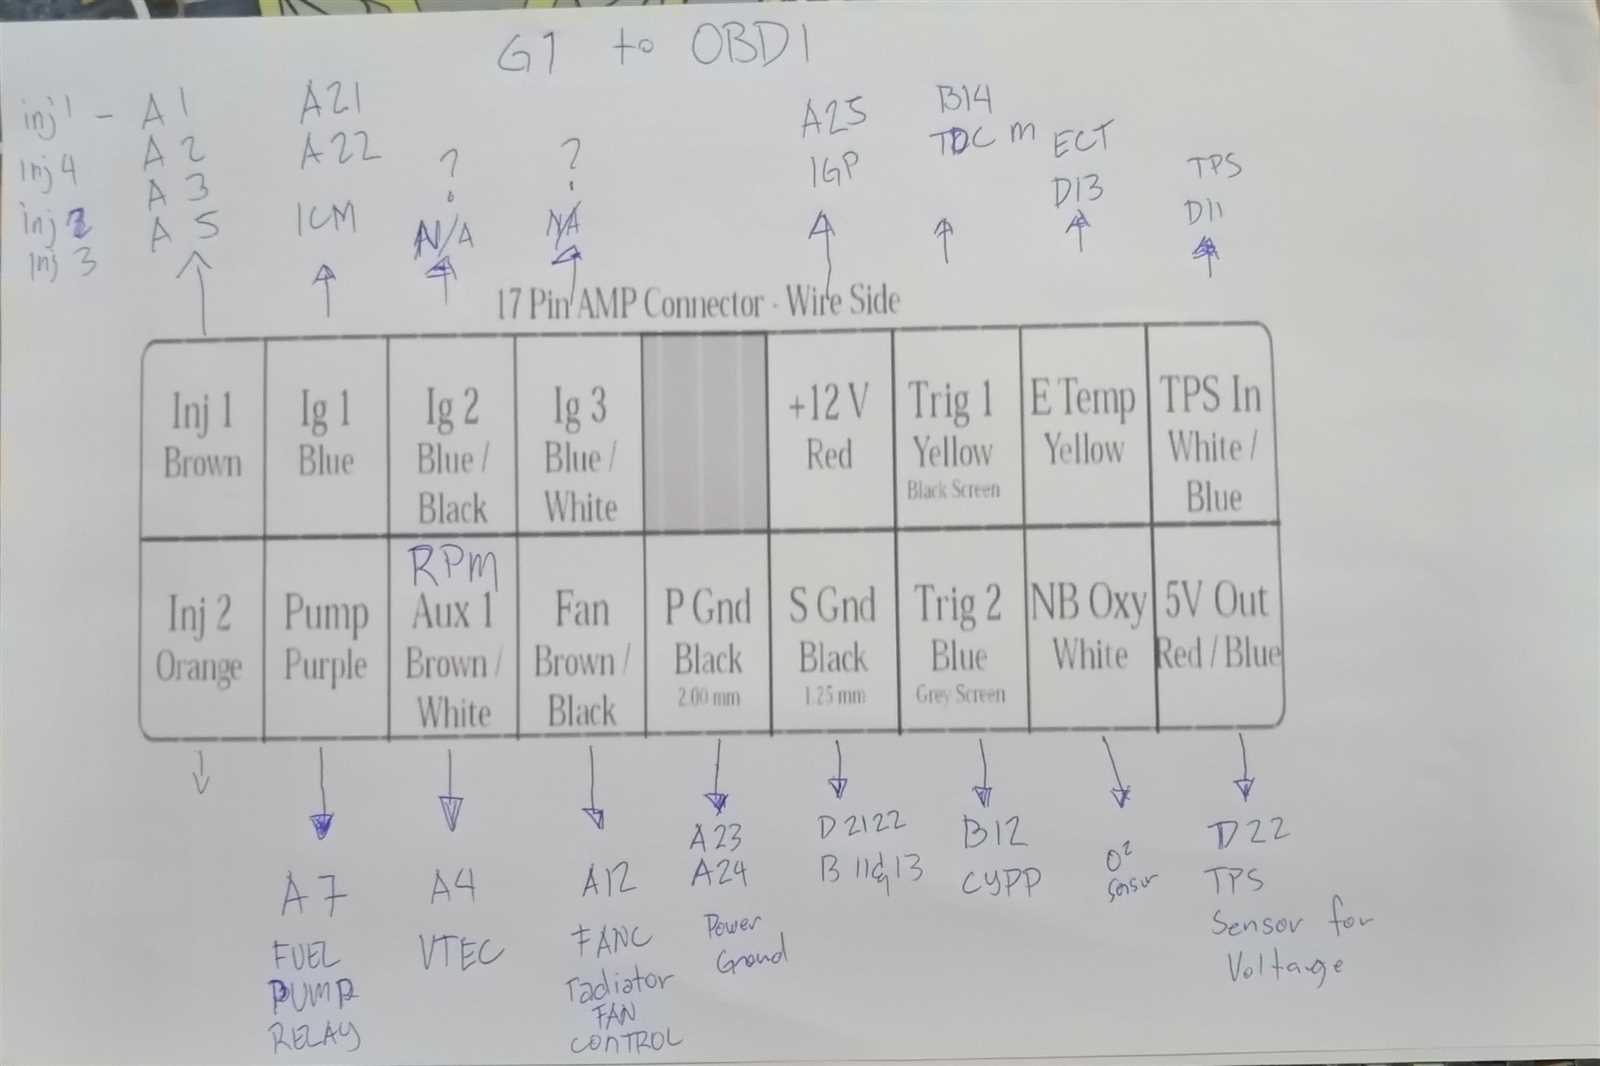 G1 to OBD1
inj 1 - A1
Inj 4 A2
inj 2 A3
Inj 3 A5
A21
A22
ICM
?
N/A
?
N/A
A25
IGP
B14
TDC M
ECT
D13
TPS
D11
17 Pin AMP Connector - Wire Side
Inj 1
Brown
Ig 1
Blue
Ig 2
Blue /
Black
Ig 3
Blue /
White
+12 V
Red
Trig 1
Yellow
Black Screen
E Temp
Yellow
TPS In
White /
Blue
Inj 2
Orange
Pump
Purple
RPM
Aux 1
Brown /
White
Fan
Brown /
Black
P Gnd
Black
2.00 mm
S Gnd
Black
1.25 mm
Trig 2
Blue
Grey Screen
NB Oxy
White
5V Out
Red / Blue
A7
FUEL
PUMP
RELAY
A4
VTEC
A12
FANC
radiator
FAN
CONTROL
A23
A24
Power
Ground
D2122
B 11&13
B12
CYPP
O2
Sensor
D22
TPS
Sensor for
Voltage